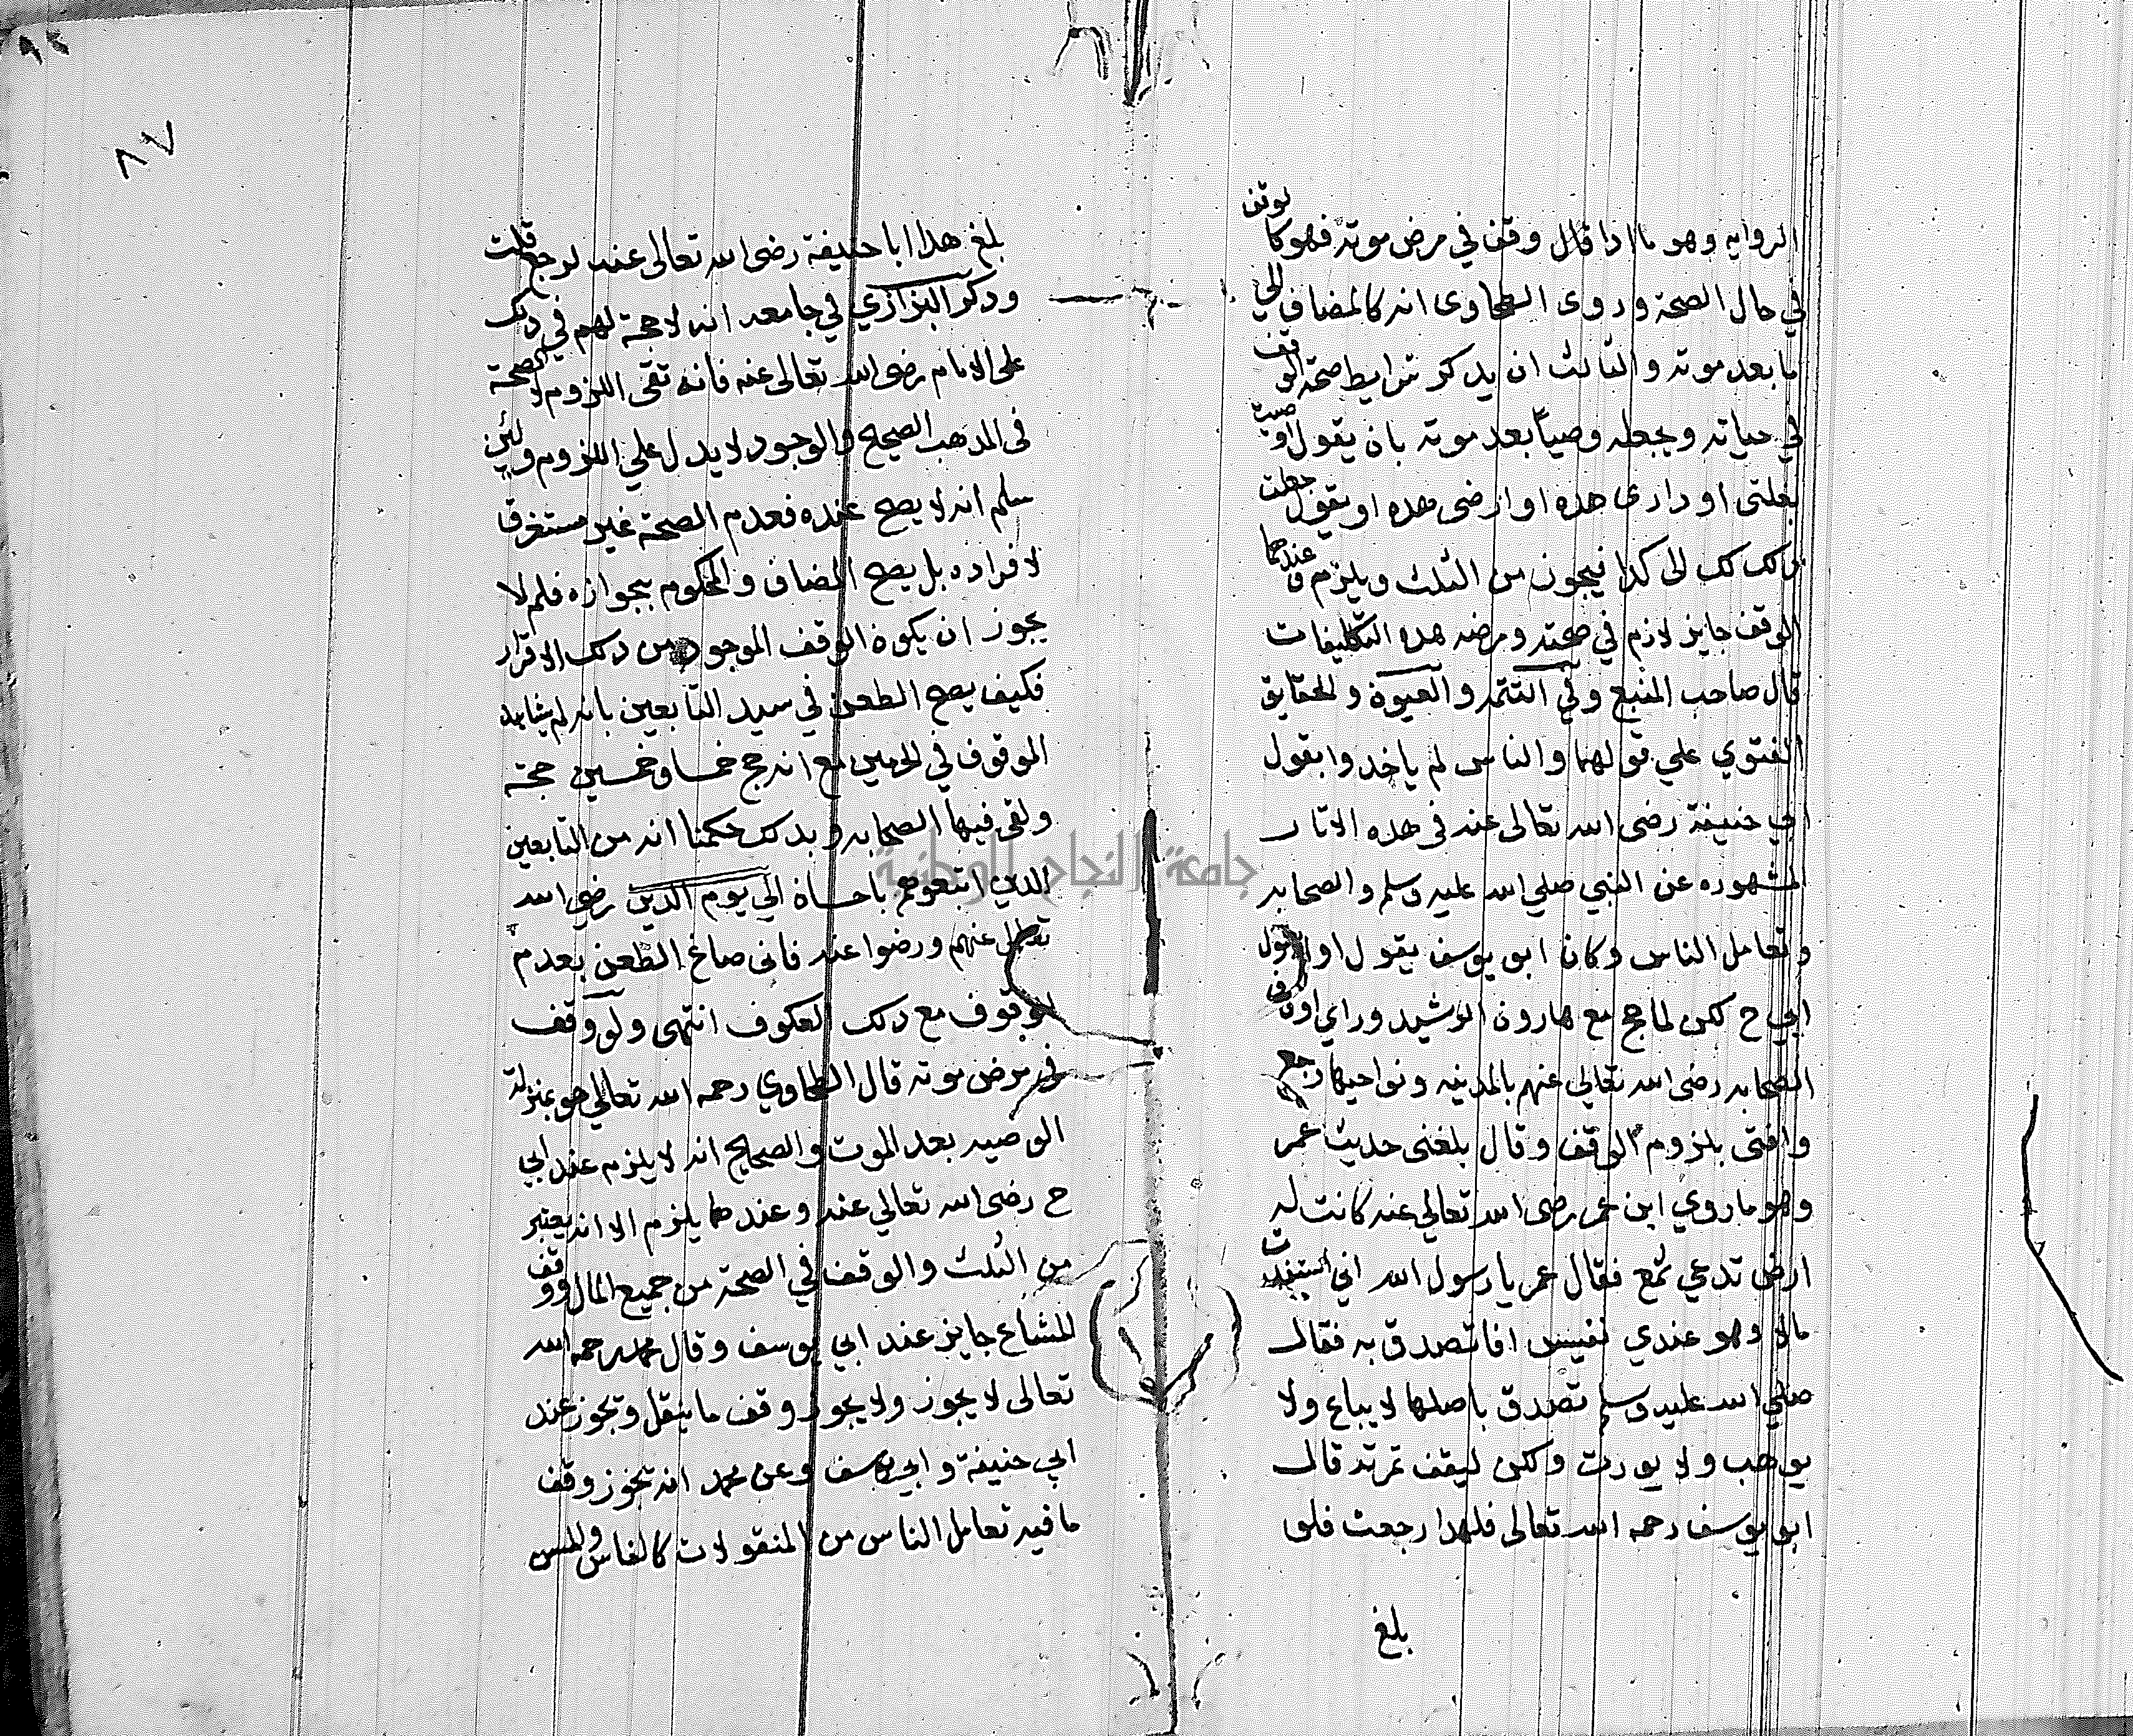 الروايه وهو ما اذا قال وقف في مرض موته فهو كالموقن
في حال الصحة وروى الطحاوى انه كالمضاف الى
ما بعد موته والثالث ان يذكر شرايط صحة الوقف
في حياته ويجعله وصياً بعد موته بان يقول اوصيت
بغلتى او دارى هذه او ارضى هذه او يقول جعلت
ذلك كك الى كذا فيجوز من الثلث ويلزم وعندهما
الوقف جايز لازم في صحته ومرضه هذه التكليفات
قال صاحب المنبع وفي التتمه والعيون والحقايق
الفتوي علي قولهما والناس لم ياخدوا بقول
ابي حنيفة رضى الله تعالى عنه فى هذه الاثار
المشهوره عن النبي صلي الله عليه وسلم والصحابه
وتعامل الناس وكان ابو يوسف يقول اولا بقول
ابي ح لكن لما حج مع هارون الرشيد وراي اوقاف
الصحابه رضى الله تعالي عنهم بالمدينه ونواحيها رجع
وافتى بلزوم الوقف وقال بلغنى حديث عمر
وهو ما روي ابن عمر رضى الله تعالي عنه كانت له
ارض تدعي ثمغ فقال عمر يا رسول الله اني استفدت
مالا وهو عندي نفيس افاتصدق به فقال
صلي الله عليه وسلم تصدق باصلها لا يباع ولا
يوهب ولا يورث ولكن ليقف ثمرته قال
ابو يوسف رحمه الله تعالى فلهذا رجعت فلو
بلغ
٨٧
بلغ هذا ابا حنيفة رضى الله تعالى عنه لرجع قلت
وذكر البزازي في جامعه انه لا حجة لهم في ذلك
على الامام رضى الله تعالى عنه فانه نفى اللزوم لا الصحة
فى المذهب الصحيح والوجود لا يدل علي اللزوم ولئن
سلم انه لا يصح عنده فعدم الصحة غير مستغرق
لافراده بل يصح المضاف والمحكوم بجوازه فلم لا
يجوز ان يكون الوقف الموجود من ذلك الاقرار
فكيف يصح الطعن في سيد التابعين بانه لم يشاهد
الموقوف في الحرمين مع انه حج خمسا وخمسين حجة
ولقى فيها الصحابه وبذلك حكمنا انه من التابعين
الذين اتبعوهم باحسان الي يوم الدين رضى الله
تعالى عنهم ورضوا عنه فانى صاغ الطعن بعدم
الوقوف مع ذلك العكوف انتهى ولو وقف
في مرض موته قال الطحاوي رحمه الله تعالي هو بمنزلة
الوصيه بعد الموت والصحيح انه لا يلزم عند ابي
ح رضى الله تعالي عنه وعندهما يلزم الا انه يعتبر
من الثلث والوقف في الصحة من جميع المال ووقف
المشاع جايز عند ابي يوسف وقال محمد رحمه الله
تعالى لا يجوز ولا يجوز وقف ما ينقل ويجوز عند
ابي حنيفة وابي يوسف وعن محمد انه يجوز وقف
ما فيه تعامل الناس من المنقولات كالفاس والمس
جامعة النجاح الوطنية